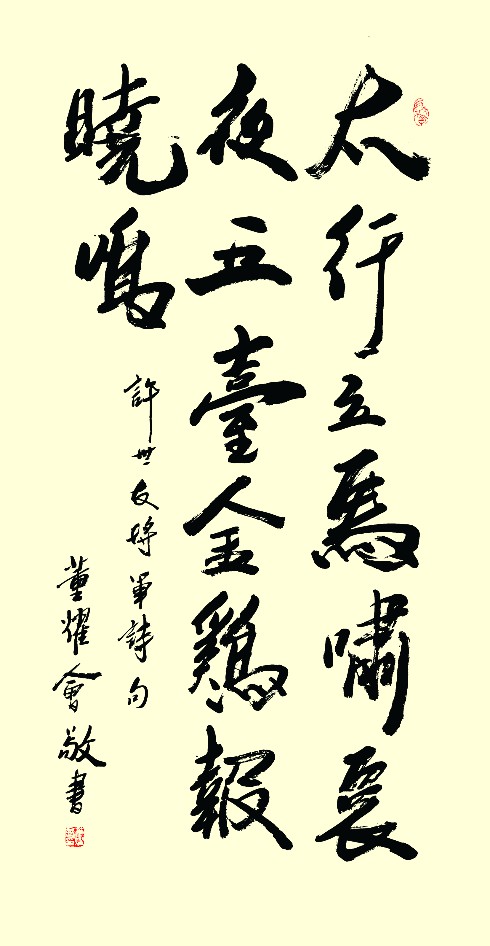 太行立馬嘯
夜五臺金鷄報
曉鳴
許世友將軍詩句
董耀會敬書